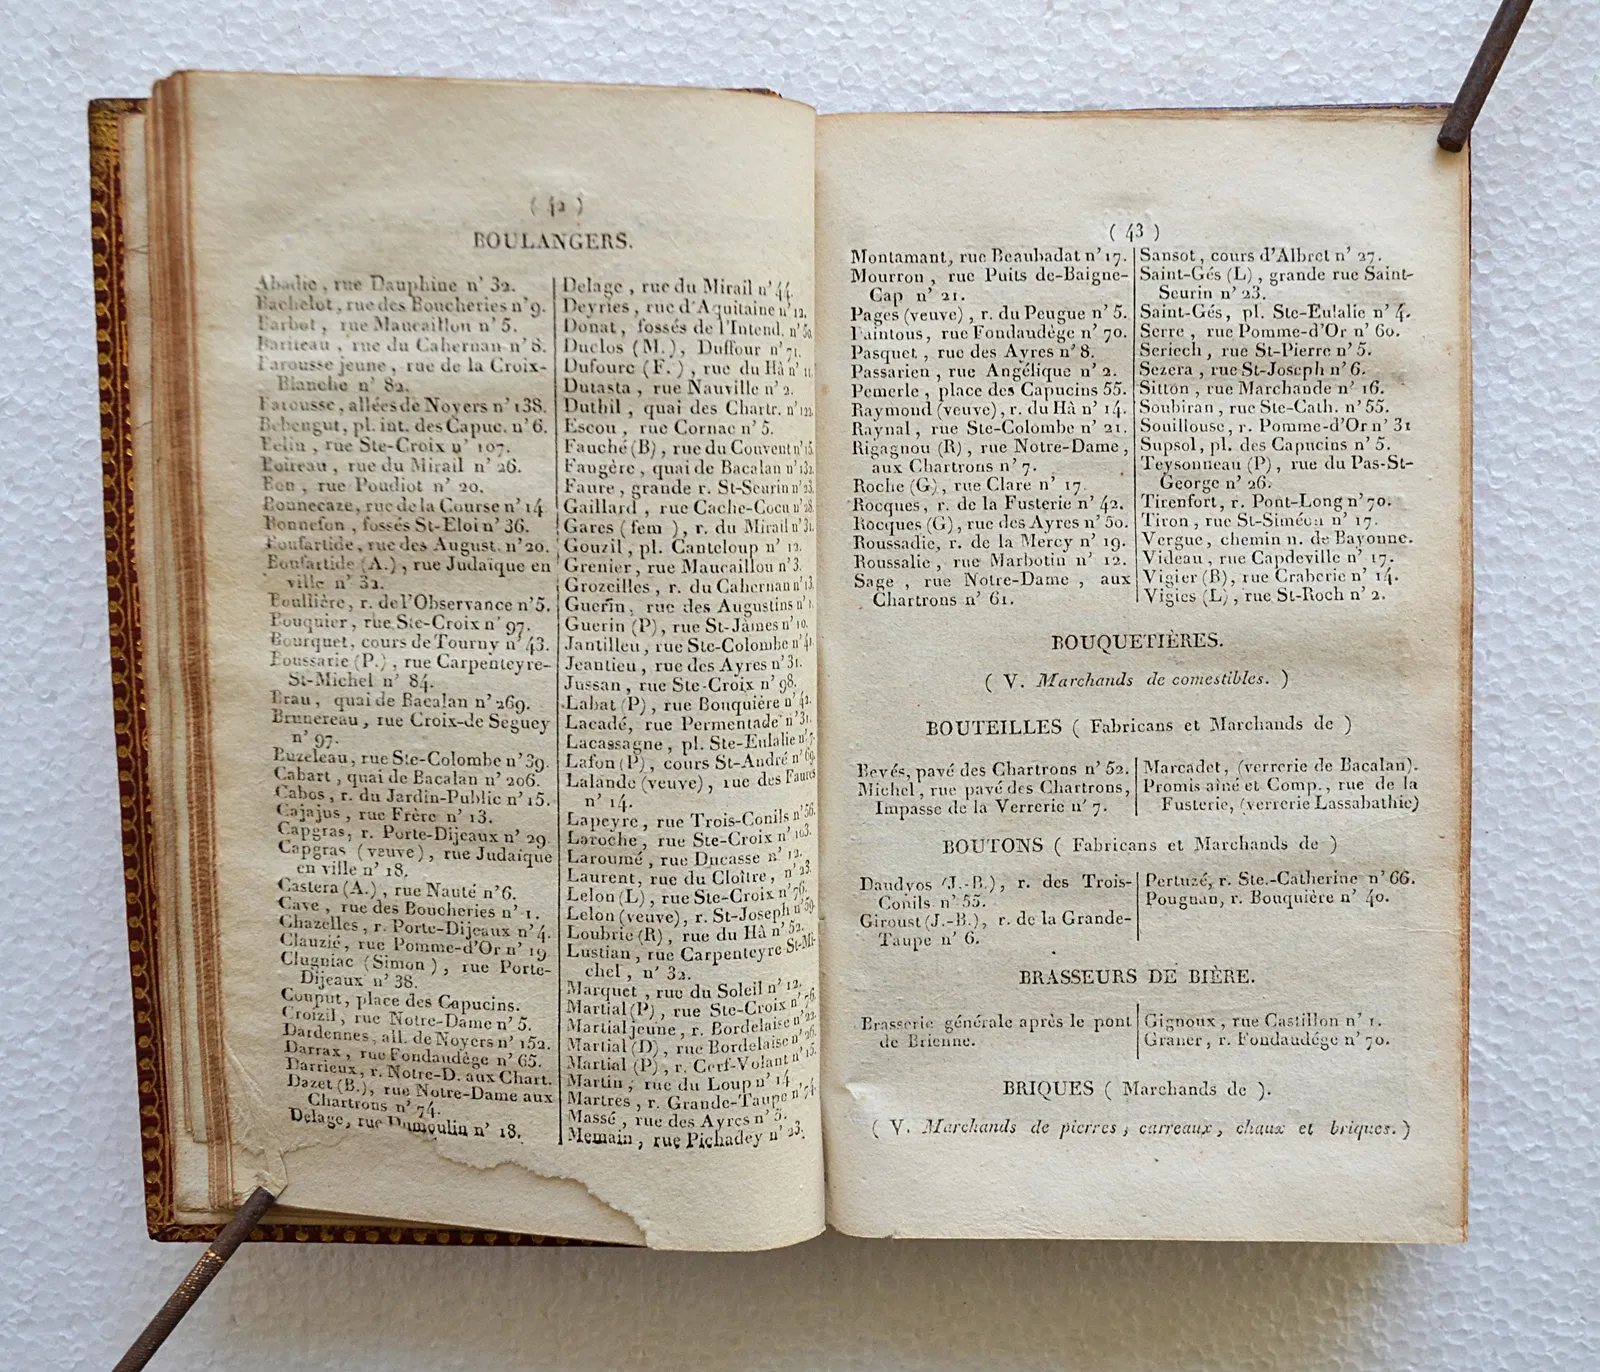 ( 42 )
BOULANGERS.
Abadie, rue Dauphine n° 32.
Bachelot, rue des Boucheries n° 9.
Barbot, rue Maucaillou n° 5.
Bariteau, rue du Cahernan n° 8.
Barousse jeune, rue de la Croix-
Blanche n° 82.
Barousse, allées de Noyers n° 138.
Bebengut, pl. int. des Capuc. n° 6.
Belin, rue Ste-Croix n° 107.
Boireau, rue du Mirail n° 26.
Bon, rue Poudiot n° 20.
Bonnecaze, rue de la Course n° 14
Bonnefon, fossés St-Eloi n° 36.
Boufartide, rue des August. n° 20.
Boufartide (A.), rue Judaïque en
ville n° 32.
Boullière, r. de l'Observance n° 5.
Bouquier, rue Ste-Croix n° 97.
Bourquet, cours de Tourny n° 43.
Boussarie (P.), rue Carpenteyre-
St-Michel n° 84.
Brau, quai de Bacalan n° 269.
Brunereau, rue Croix-de Seguey
n° 97.
Buzeleau, rue Ste-Colombe n° 39.
Cabart, quai de Bacalan n° 206.
Cabos, r. du Jardin-Public n° 15.
Cajajus, rue Frère n° 13.
Capgras, r. Porte-Dijeaux n° 29.
Capgras (veuve), rue Judaïque
en ville n° 18.
Castera (A.), rue Nauté n° 6.
Cave, rue des Boucheries n° 1.
Chazelles, r. Porte-Dijeaux n° 4.
Clauzié, rue Pomme-d'Or n° 19
Clugniac (Simon), rue Porte-
Dijeaux n° 38.
Couput, place des Capucins.
Croizil, rue Notre-Dame n° 5.
Dardennes, all. de Noyers n° 152.
Darrax, rue Fondaudège n° 65.
Darrieux, r. Notre-D. aux Chart.
Dazet (B.), rue Notre-Dame aux
Chartrons n° 74.
Delage, rue Dumoulin n° 18.
Delage, rue du Mirail n° 44.
Deyries, rue d'Aquitaine n° 12.
Donat, fossés de l'Intend. n° 50
Duclos (M.), Duffour n° 71.
Dufourc (F.), rue du Hà n° 11.
Dutasta, rue Nauville n° 2.
Duthil, quai des Chartr. n° 122.
Escou, rue Cornac n° 5.
Fauché (B), rue du Couvent n° 15.
Faugère, quai de Bacalan n° 132.
Faure, grande r. St-Seurin n° 23.
Gaillard, rue Cache-Cocu n° 28.
Gares (fem ), r. du Mirail n° 31.
Gouzil, pl. Canteloup n° 12.
Grenier, rue Maucaillou n° 3.
Grozeilles, r. du Cahernan n° 13.
Guerin, rue des Augustins n° 1.
Guerin (P), rue St-James n° 10.
Jantilleu, rue Ste-Colombe n° 41.
Jeantieu, rue des Ayres n° 31.
Jussan, rue Ste-Croix n° 98.
Labat (P), rue Bouquière n° 42.
Lacadé, rue Permentade n° 31.
Lacassagne, pl. Ste-Eulalie n° 7.
Lafon (P), cours St-André n° 69.
Lalande (veuve), rue des Faures
n° 14.
Lapeyre, rue Trois-Conils n° 56.
Laroche, rue Ste-Croix n° 103.
Laroumé, rue Ducasse n° 12.
Laurent, rue du Cloître, n° 23.
Lelon (L), rue Ste-Croix n° 76.
Lelon (veuve), r. St-Joseph n° 59.
Loubric (R), rue du Hâ n° 52.
Lustian, rue Carpenteyre St-Mi-
chel, n° 32.
Marquet, rue du Soleil n° 12.
Martial (P), rue Ste-Croix n° 76.
Martial jeune, r. Bordelaise n° 22.
Martial (D), rue Bordelaise n° 26.
Martial (P), r. Cerf-Volant n° 15.
Martin, rue du Loup n° 14.
Martres, r. Grande-Taupe n° 74.
Massé, rue des Ayres n° 5.
Memain, rue Pichadey n° 23.
( 43 )
Montamant, rue Beaubadat n° 17.
Mourron, rue Puits de-Baigne-
Cap n° 21.
Pages (veuve), r. du Peugue n° 5.
Paintous, rue Fondaudège n° 70.
Pasquet, rue des Ayres n° 8.
Passarieu, rue Angélique n° 2.
Pemerle, place des Capucins 55.
Raymond (veuve), r. du Hà n° 14.
Raynal, rue Ste-Colombe n° 21.
Rigagnou (R), rue Notre-Dame,
aux Chartrons n° 7.
Roche (G), rue Clare n° 17.
Rocques, r. de la Fusterie n° 42.
Rocques (G), rue des Ayres n° 50.
Roussadie, r. de la Mercy n° 19.
Roussalie, rue Marbotin n° 12.
Sage, rue Notre-Dame, aux
Chartrons n° 61.
Sansot, cours d'Albret n° 27.
Saint-Gés (L), grande rue Saint-
Seurin n° 23.
Saint-Gés, pl. Ste-Eulalie n° 4.
Serre, rue Pomme-d'Or n° 60.
Seriech, rue St-Pierre n° 5.
Sezera, rue St-Joseph n° 6.
Sitton, rue Marchande n° 16.
Soubiran, rue Ste-Cath. n° 55.
Souillouse, r. Pomme-d'Or n° 31
Supsol, pl. des Capucins n° 5.
Teysonneau (P), rue du Pas-St-
George n° 26.
Tirenfort, r. Pont-Long n° 70.
Tiron, rue St-Siméon n° 17.
Vergue, chemin n. de Bayonne.
Videau, rue Capdeville n° 17.
Vigier (B), rue Craberie n° 14.
Vigies (L), rue St-Roch n° 2.
BOUQUETIÈRES.
( V. Marchands de comestibles. )
BOUTEILLES ( Fabricans et Marchands de )
Bevés, pavé des Chartrons n° 52.
Michel, rue pavé des Chartrons,
Impasse de la Verrerie n° 7.
Marcadet, (verrerie de Bacalan).
Promis aîné et Comp., rue de la
Fusterie, (verrerie Lassabathie)
BOUTONS ( Fabricans et Marchands de )
Daudyos (J.-B.), r. des Trois-
Conils n° 55.
Giroust (J.-B.), r. de la Grande-
Taupe n° 6.
Pertuzé, r. Ste.-Catherine n° 66.
Pougnan, r. Bouquière n° 40.
BRASSEURS DE BIÈRE.
Brasserie générale après le pont
de Brienne.
Gignoux, rue Castillon n° 1.
Graner, r. Fondaudége n° 70.
BRIQUES ( Marchands de ).
( V. Marchands de pierres, carreaux, chaux et briques. )